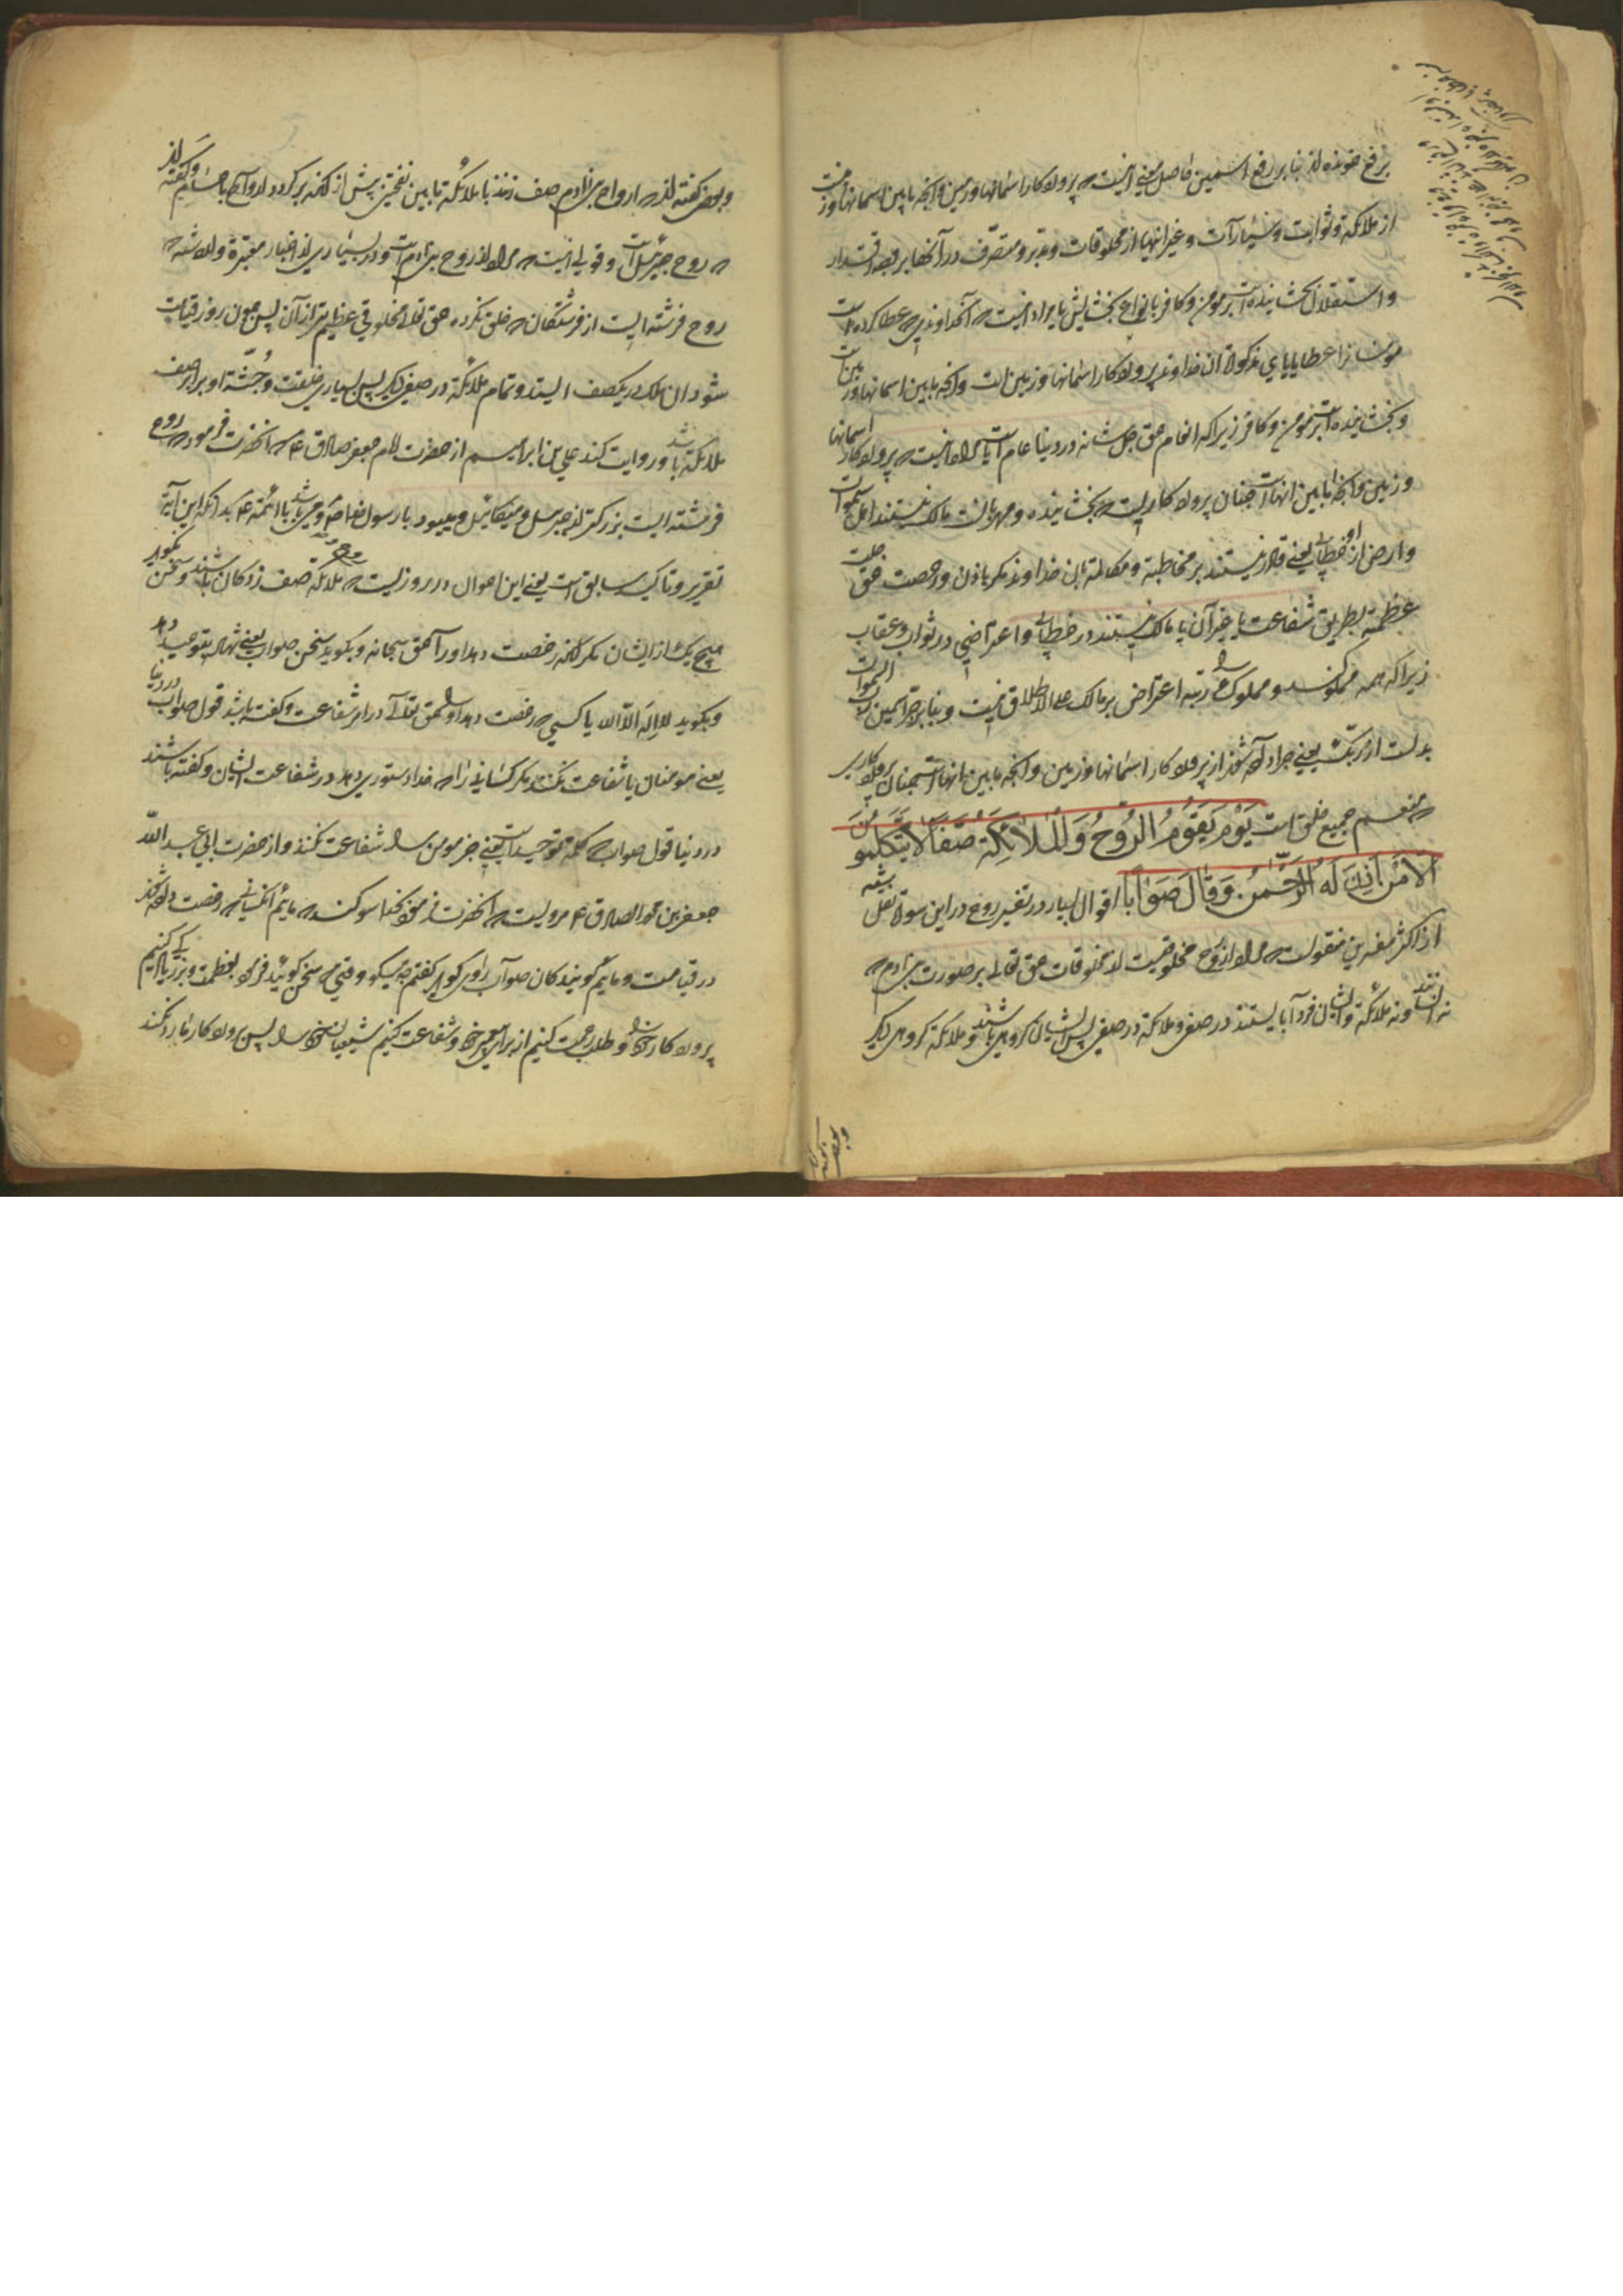 برفع خوانده‌اند بنا بر رفع اسمین حاصل معنی اینست که پروردکار اسمانها و زمین و آنچه مابین اسمانها و زمینست
از ملائکة و ثوابت و سیارات و غیر اینها از مخلوقات و مدبر و متصرف در آنها بر وجه اقتدار
و استقلال بخشاینده است بر مومن و کافر بانواع بخشایش یا مراد اینست که آنخداوندی که عطا کرده است
مومنانرا عطایایای مذکوره آن خداوند پروردکار اسمانها و زمین است و آنچه مابین اسمانها و زمین است
و بخشاینده است بر مومن و کافر زیرا که انعام حق جل شانه در دنیا عام است یا مراد اینست که پروردکار اسمانها
و زمین و آنچه مابین انهاست چنان پروردکاریست که بخشاینده و مهربانست مالک نیستند اهل سموات
و ارض از او خطابی یعنی قادر نیستند بر مخاطبة و مکالمة بان خداوند مکر باذن و رخصت حق جلت
عظمته بطریق شفاعت یا غیر آن یا مالک نیستند در خطابی و اعتراضی در ثواب و عقاب
زیرا که همه مملوکند و مملوک را رتبه اعتراض بر مالک علی الاطلاق نیست و بنا بر جر اسمین رب السموات
بدلست از ربک یعنی جزا داده شوند از پروردکار اسمانها و زمین و آنچه مابین انهاست چنان پروردکاری
که منعم جمیع خلق است یَوْمَ یَقُوْمُ الرُّوْحُ وَالْمَلَائِکَةُ صَفّاً لَا یَتَکَلَّمُوْنَ
اِلَّا مَنْ اَذِنَ لَهُ الرَّحْمٰنُ وَقَالَ صَوَاباً اقوال بسیار در تفسیر روح در این سوره نقل شده
از اکثر مفسرین منقولست که مراد از روح مخلوقیست از مخلوقات حق تعالی بر صورت بنی ادم که
نه انسانند و نه ملائکة و ایشان فردا بایستند در صفی و ملائکة در صفی پس ایشان کروهی باشند و ملائکة کروهی دیکر
وبعضی گفته‌اند
و بعضی گفته‌اند که ارواح بنی ادم صف زنند با ملائکة مابین نفختین پیش از انکه برکردد ارواح باجسام و گفته‌اند
که روح جبرئیل است و قولی اینست که مراد از روح بنی ادم است و در بسیاری از اخبار معتبرة وارد شده که
روح فرشته ایست از فرشتکان که خلق نکرده حق تعالی مخلوقی عظیم تر از آن پس چون روز قیامت
شود ان ملک در یکصف ایستد و تمام ملائکة در صفی دیکر پس بسیاری خلقت و جُثّهٔ او برابر صف
ملائکة باشد و روایت کند علی بن ابراهیم از حضرت امام جعفر صادق ع که انحضرت فرمود که روح
فرشته ایست بزرکتر از جبرییل و میکائیل و میبود با رسول خدا ص و می باشد با ائمة ع بدانکه این آیة
تقریر و تاکید سابق است یعنی این احوال در روزیست که روح و ملائکة صف زدکان باشند و سخن نکوید
هیچ یک از ایشان مکر انکه رخصت دهد او را حق سبحانه و بکوید سخن صواب یعنی شهادت بتوحید دهد
و بکوید لااِلهَ اِلّا الله یا کسی که رخصت دهد او را حق تعالی در امر شفاعت و گفته باشد قول صواب در دنیا
یعنی مومنان یا شفاعت نکنند مکر کسانی را که خدا دستوری دهد در شفاعت ایشان و گفته باشند
در دنیا قول صواب که کلمه توحید است یعنی جز مومن را شفاعت نکنند و از حضرت ابی عبد الله
جعفر بن محمد الصادق ع مرویست که انحضرت فرمود بخدا سوکند که مائیم انکسانی که رخصت داده شوند
در قیامت و مائیم گویندکان صواب راوی گوید گفتم چه میکویید وقتی که سخن گوئید فرمود بعظمت و بزرگی یاد کنیم
پروردکار خود را و طلب رحمت کنیم از برای پیغمبر خود و شفاعت کنیم شیعیان خود را پس پروردکار ما رد نکند